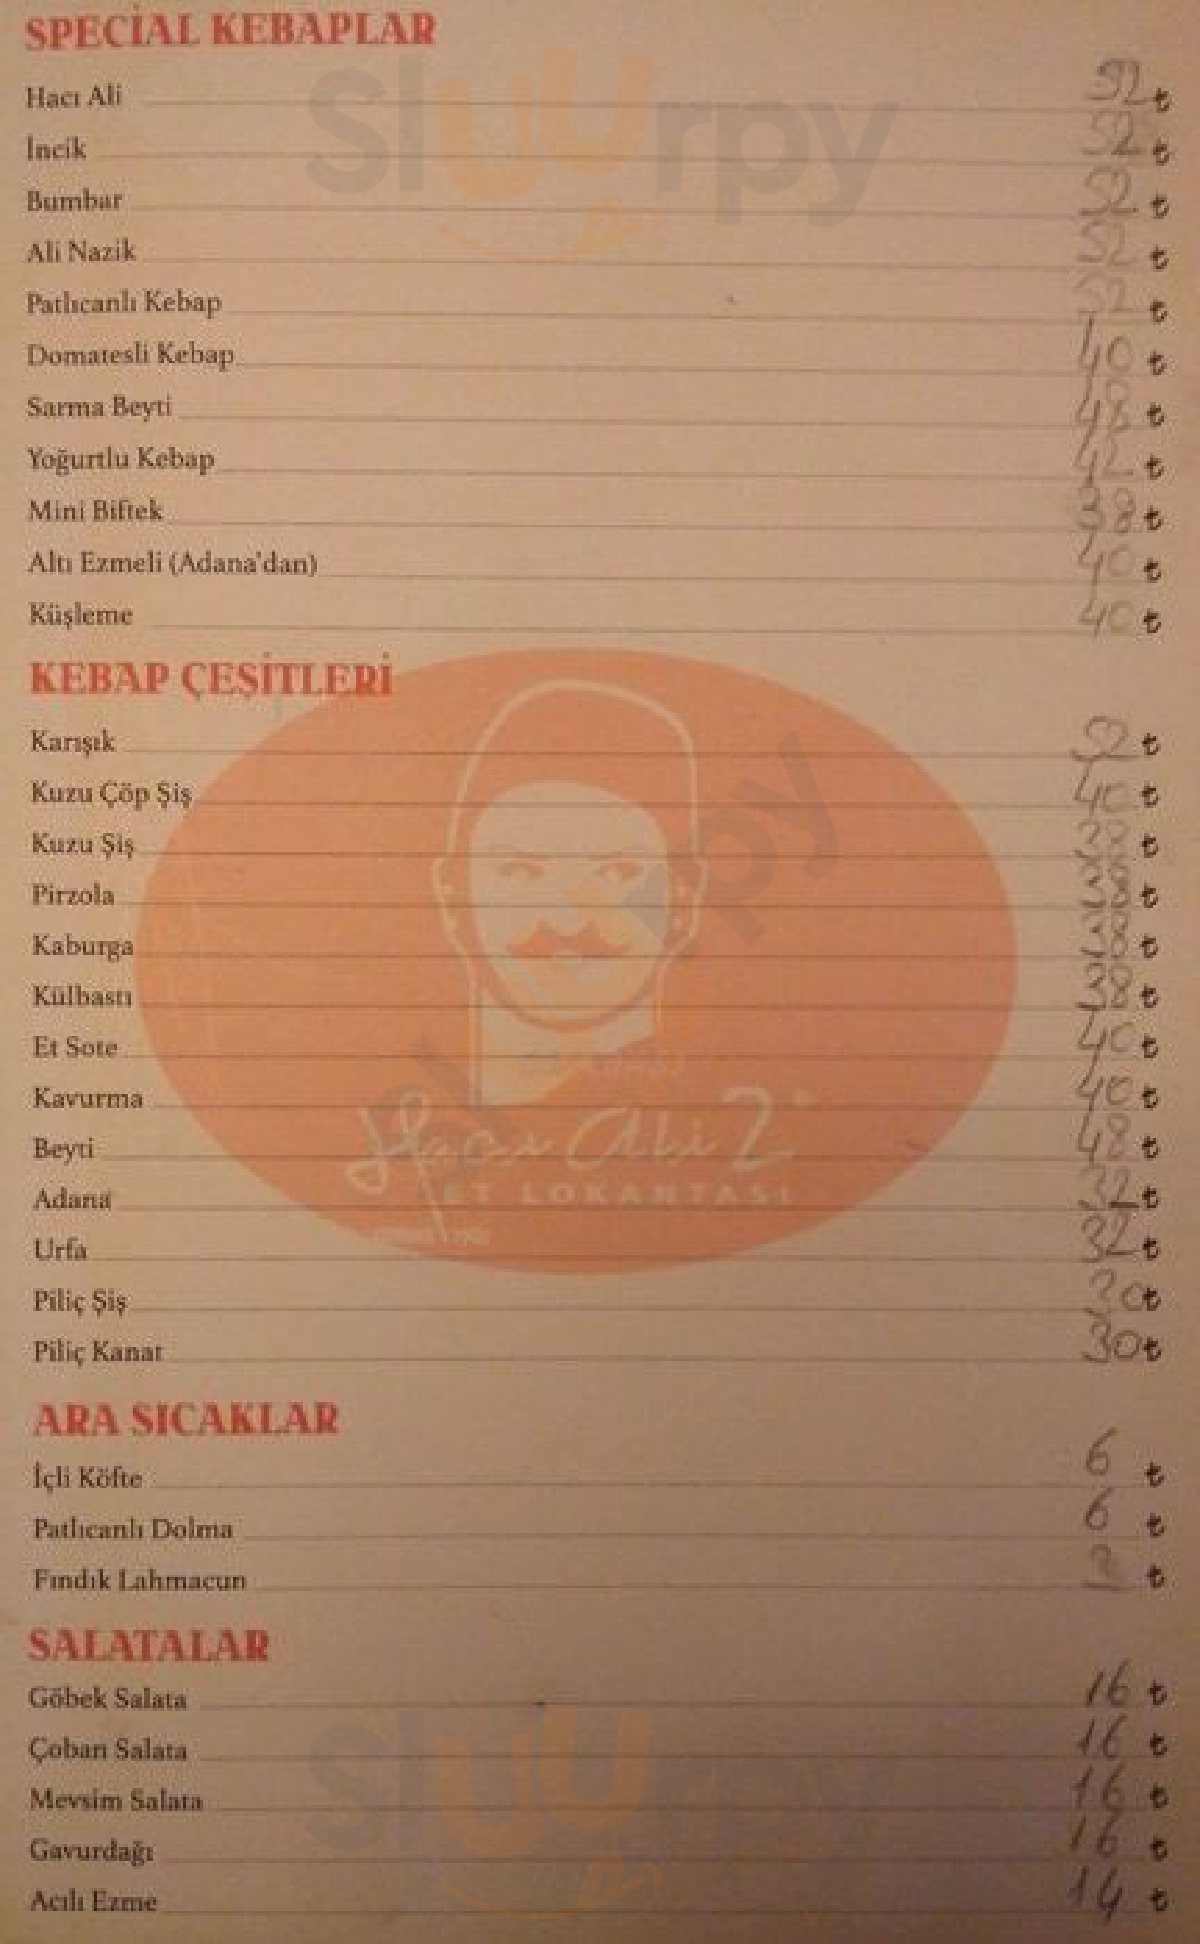 SPECİAL KEBAPLAR
Hacı Ali 52 ₺
İncik 52 ₺
Bumbar 52 ₺
Ali Nazik 52 ₺
Patlıcanlı Kebap 52 ₺
Domatesli Kebap 40 ₺
Sarma Beyti 48 ₺
Yoğurtlu Kebap 42 ₺
Mini Biftek 38 ₺
Altı Ezmeli (Adana'dan) 40 ₺
Küşleme 40 ₺
KEBAP ÇEŞİTLERİ
Karışık 52 ₺
Kuzu Çöp Şiş 40 ₺
Kuzu Şiş 38 ₺
Pirzola 38 ₺
Kaburga 38 ₺
Külbastı 38 ₺
Et Sote 40 ₺
Kavurma 40 ₺
Beyti 48 ₺
Adana 32 ₺
Urfa 32 ₺
Piliç Şiş 30 ₺
Piliç Kanat 30 ₺
Hacı Ali 2
ET LOKANTASI
ARA SICAKLAR
İçli Köfte 6 ₺
Patlıcanlı Dolma 6 ₺
Fındık Lahmacun ₺
SALATALAR
Göbek Salata 16 ₺
Çoban Salata 16 ₺
Mevsim Salata 16 ₺
Gavurdağı 16 ₺
Acılı Ezme 14 ₺
Sluurpy
Sluurpy
Sluurpy